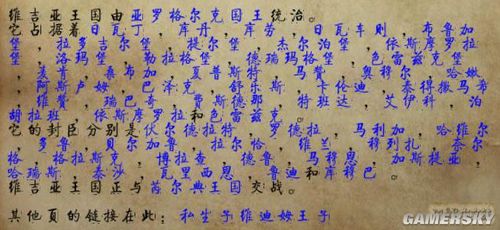 维吉亚王国由亚罗格尔克国王统治。
它占据着日瓦丁，库丹，库劳，日瓦车则，布鲁加
堡，拉多吉尔堡，提尔堡，杰尔泊堡，依斯摩罗拉
堡，洛玛堡，勒拉格堡，德瑞玛格堡，色雷兹克堡
，麦肯，桑布加，夏普斯特，马赞，奥穆尔，哈嫩
，阿斯卢姆，巴泽克，舒乐斯，卡伦迪，泰得撒马希
，维赞，瑞巴奇，费斯德那，特班达，艾伊科，泊
胡拉班，依斯摩罗拉和色雷兹克。
它的封臣分别是伏尔德拉特，罗德拉，马利加，哈维尔
，多鲁，贝尔加鲁，拉尔恰，维兰，穆列扎，泰尔
格，格拉斯克，博拉查，德鲁，马穆恩，加斯提亚，
哈瑞斯多，泰沙，瓦里西恩，鲁迪和库穆巴。
维吉亚王国正与芮尔典王国交战。
其他页的链接在此：私生子维迪姆王子
GAMERSKY